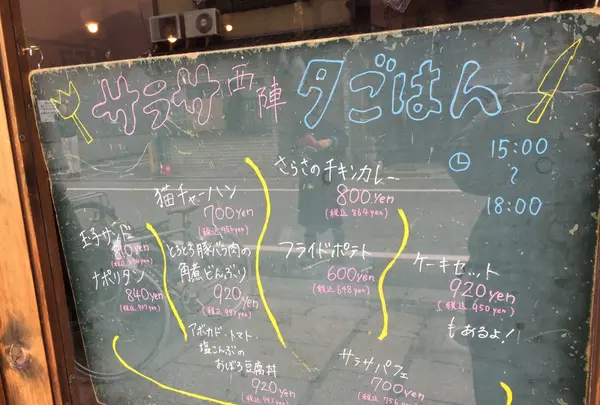 サラサ西陣 夕ごはん
15:00
〜
18:00
さらさのチキンカレー
800yen
(税込 864yen)
猫チャーハン
700yen
(税込 756yen)
玉子サンド
ナポリタン
840yen
(税込 907yen)
とろとろ豚バラ肉の
角煮どんぶり
920yen
フライドポテト
600yen
(税込 648yen)
ケーキセット
920yen
(税込 950yen)
もあるよ!
アボカド・トマト・
塩こんぶの
おぼろ豆腐丼
920yen
サラサパフェ
700yen
(税込 756yen)